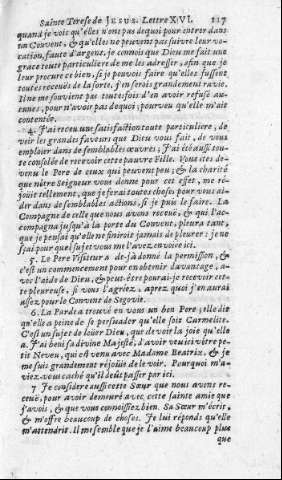 Sainte Terese de JESUS. Lettre XVI. 117
quand je vois qu'elles n'ont pas dequoi pour entrer dans
un Convent, & qu'elles ne peuvent pas suivre leur vo-
cation, faute d'argent, je connois que Dieu me fait une
grace toute particuliere de me les adresser, afin que je
leur procure ce bien, si je pouvois faire qu'elles fussent
toutes receuës de la sorte, j'en serois grandement ravie.
Il ne me souvient pas toutefois d'en avoir refusé au-
cunes, pour n'avoir pas dequoi; pourveu qu'elle m'ait
contentée.
4. J'ai receu une satisfaction toute particuliere, de
voir les grandes faveurs que Dieu vous fait, de vous
emploier dans de semblables œuvres; J'ai été aussi tou-
te consolée de recevoir cette pauvre Fille. Vous étes de-
venu le Pere de ceux qui peuvent peu; & la charité
que nôtre Seigneur vous donne pour cet effet, me ré-
jouit tellement, que je ferai toutes choses pour vous ai-
der dans de semblables actions, si je puis le faire. La
Compagne de celle que nous avons receuë, & qui l'ac-
compagna jusqu'à la porte du Convent, pleura tant,
que je pensai qu'elle ne finiroit jamais de pleurer: je ne
sçai pour quel sujet vous me l'avez envoiée ici.
5. Le Pere Visiteur a de-jà donné la permission, &
c'est un commencement pour en obtenir davantage, a-
vec l'aide de Dieu, & peut-être pourai-je recevoir cet-
te pleureuse, si vous l'agréez, aprez quoi j'en aurai
assez pour le Convent de Segovie.
6. La Parde a trouvé en vous un bon Pere; elle dit
qu'elle a peine de se persuader qu'elle soit Carmelite.
C'est un sujet de loüer Dieu, que de voit la joie qu'elle
a. J'ai beni sa divine Majesté, d'avoir veu ici vôtre pe-
tit Neveu, qui est venu avec Madame Beatrix, & je
me suis grandement réjoüie de le voir. Pourquoi m'a-
viez vous caché qu'il deût passer par ici.
7 Je considere aussi cette Sœur que nous avons re-
ceuë, pour avoir demeuré avec cette sainte amie que
j'avois, & que vous connoissiez bien. Sa Sœur m'écris,
& m'offre beaucoup de choses. Je lui répons qu'elle
m'attendrit. Il me semble que je l'aime beaucoup plus
que